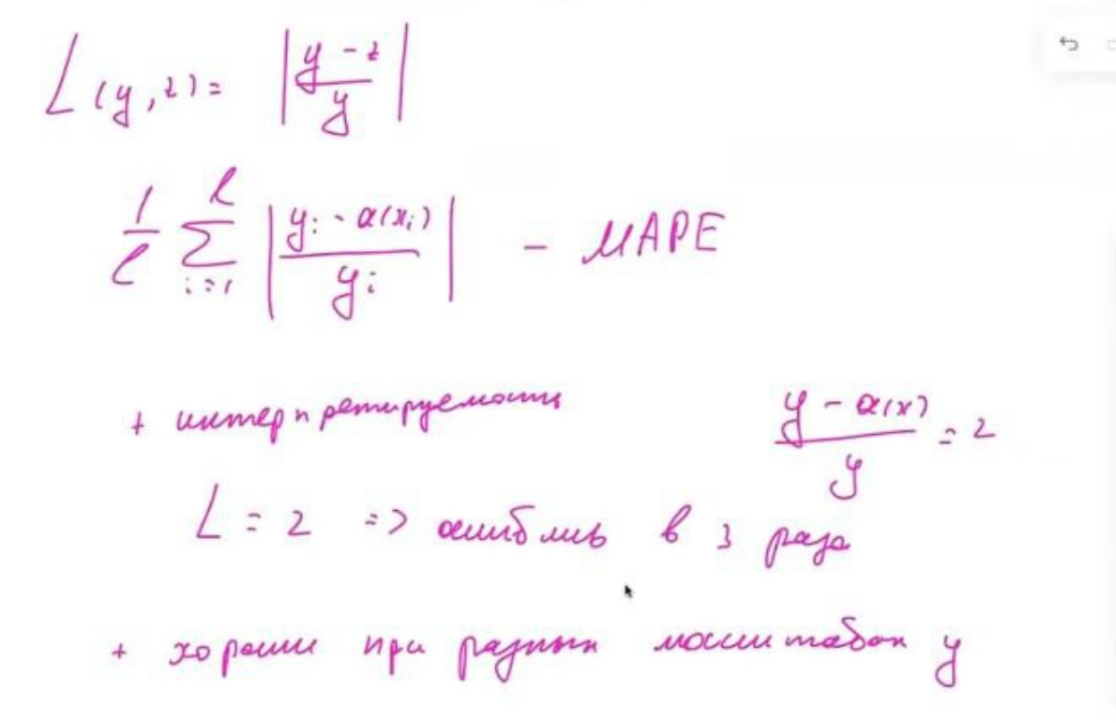 L(y, z) = |(y - z) / y|
1/ℓ ∑_{i=1}^{ℓ} |(y_i - a(x_i)) / y_i| - MAPE
+ интерпретируемость (y - a(x)) / y = 2
L = 2 => ошиблись в 3 раза
+ хороши при разных масштабах y